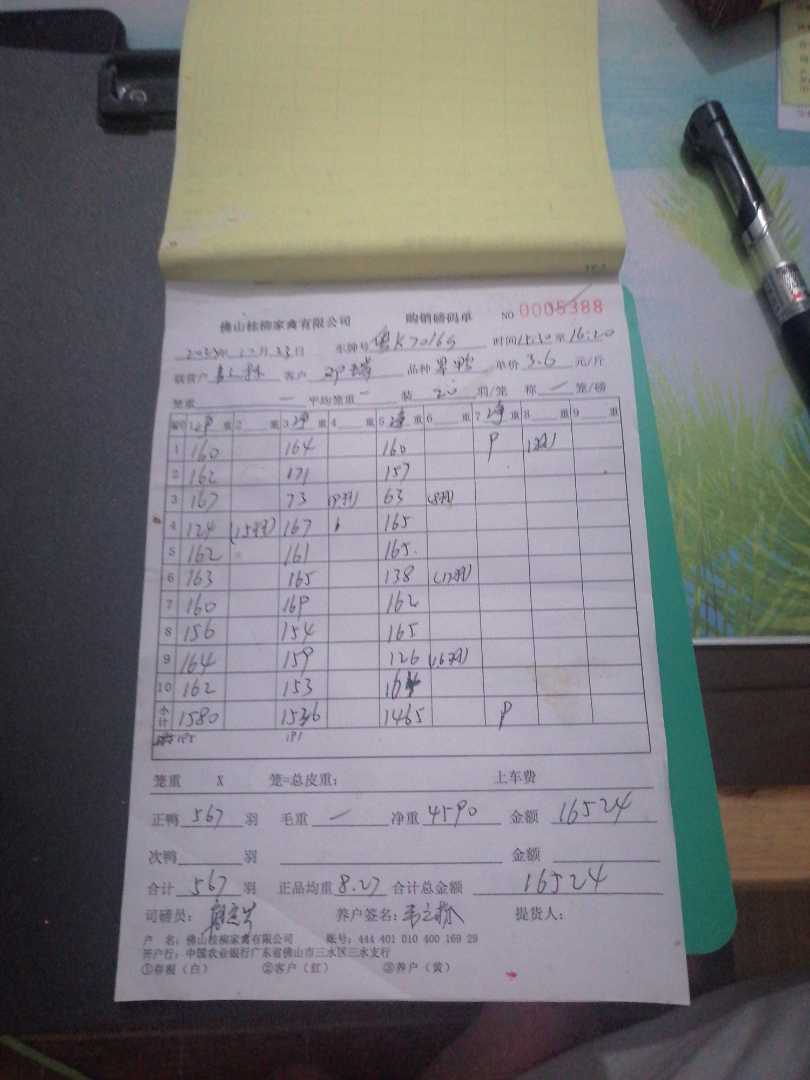 佛山桂柳家禽有限公司 购销磅码单 NO 0005388
2023年12月23日 车牌号 粤K7016G 时间15:30至16:20
联营户 客户 邓 品种 单价 3.6 元/斤
笼重 一 平均笼重 一 装 20 羽/笼 称 一 笼/磅
编号 1 净 重 2 重 3 净 重 4 重 5 净 重 6 重 7 净 重 8 重 9 重
1 160 164 160 9 1羽
2 162 171 157
3 167 73 (9羽) 63 (8羽)
4 124 (15羽) 167 165
5 162 161 165
6 163 165 138 (17羽)
7 160 169 162
8 156 154 165
9 164 159 126 (16羽)
10 162 153 164
小计 1580 1536 1465 9
195 191
笼重 X 笼=总皮重: 上车费
正鸭 567 羽 毛重 一 净重 4590 金额 16524
次鸭 羽 金额
合计 567 羽 正品均重 8.27 合计总金额 16524
司磅员: 养户签名: 提货人:
户 名: 佛山桂柳家禽有限公司 账号: 444 401 010 400 169 29
开户行: 中国农业银行广东省佛山市三水区三水支行
①存根(白) ②客户(红) ③养户(黄)